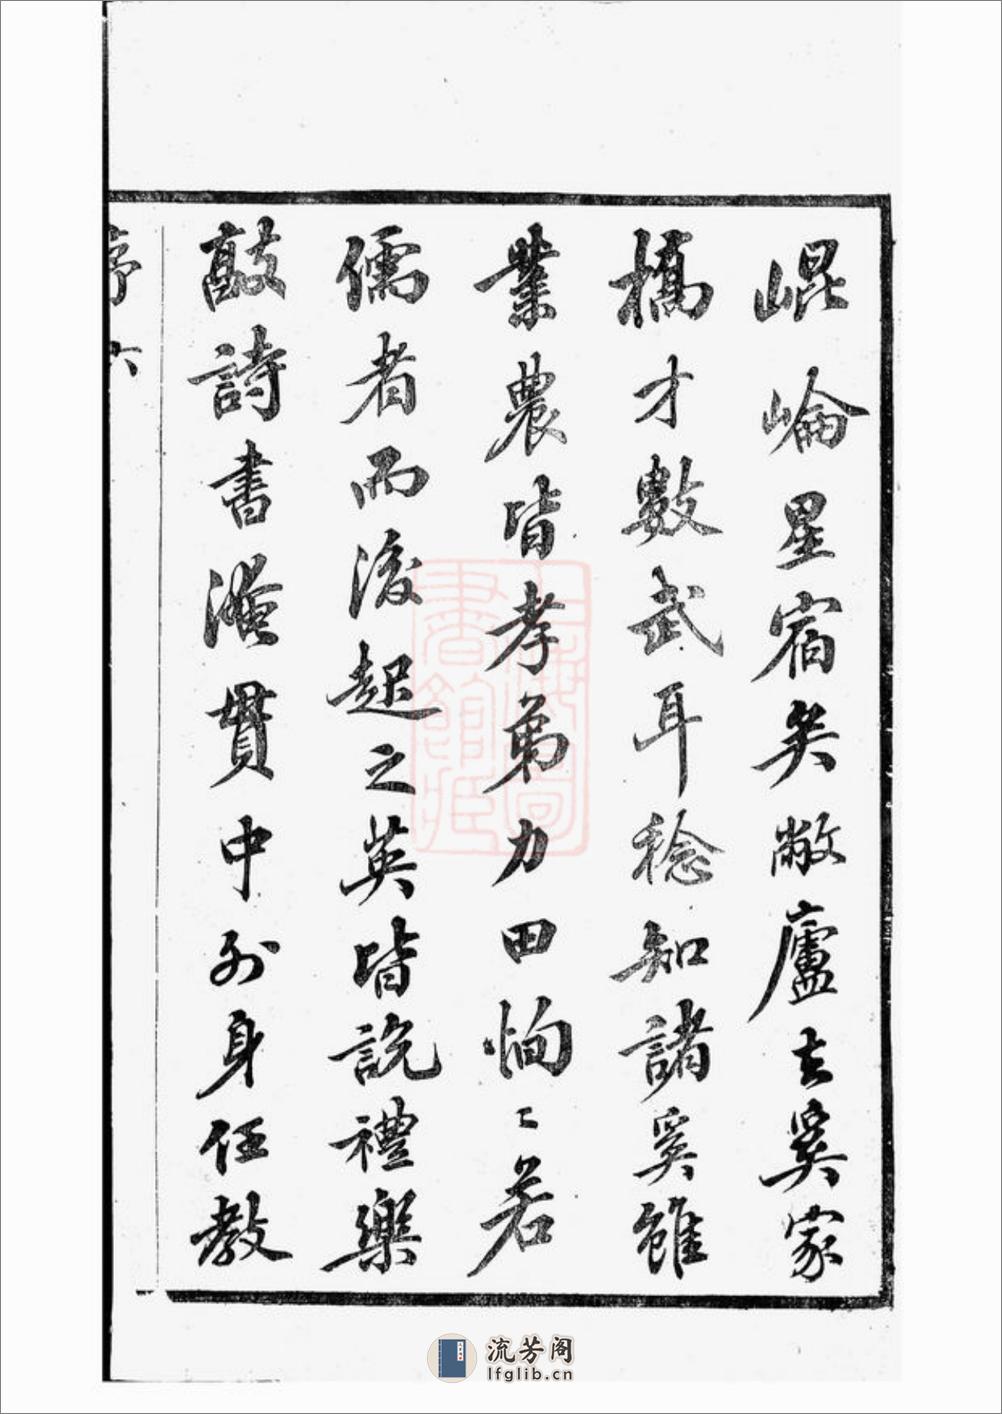 崐崘星宿矣敝廬去奚家
橋才數武耳稔知諸奚雖
業農皆孝弟力田恂〻若
儒者而後起之英皆説禮樂
敲詩書淹貫中外身任教
序 六
流芳阁
lfglib.cn